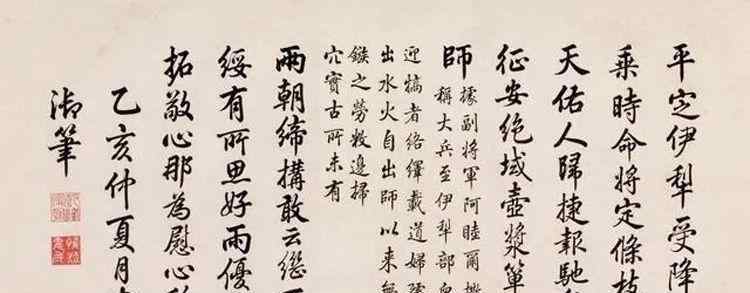 平定伊犁受降
乘時命將定條枝
天佑人歸捷報馳
征安絶域壺漿簞
師據副將軍阿睦爾撒
稱大兵至伊犁部
迎犒者絡繹載道婦孺
出水火自出師以来無
鏃之勞救邊掃
穴實古所未有
兩朝締搆敢云繼
綏有所思好雨優
拓敵心那為慰心
乙亥仲夏月
御筆